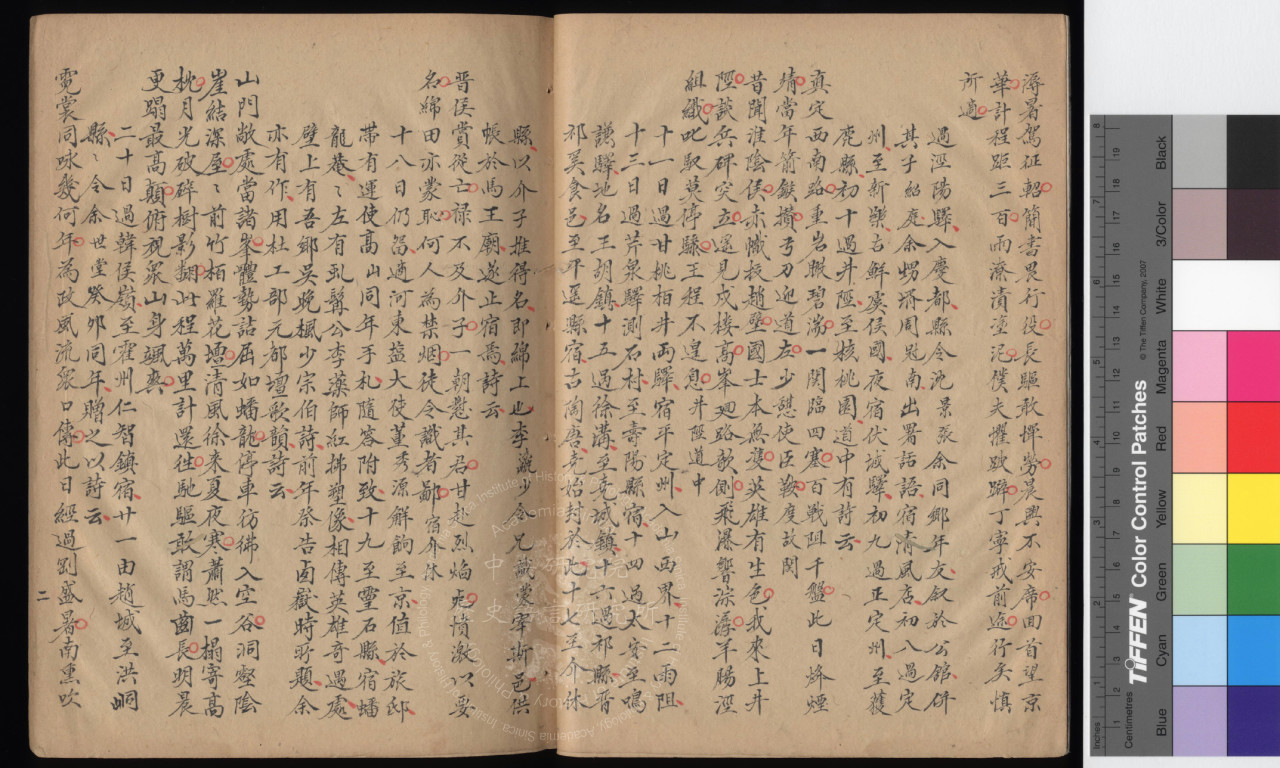 溽暑駕征軺簡書畏行役長驅敢憚勞晨興不安席回首望京
華計程距三百雨潦漬塗泥僕夫懼跛躃丁寧戒前途行矣慎
所適
過涇陽驛入慶都縣令沈景張余同鄉年友叙於公館併
其子紹庭余甥壻周尅南出署話語宿清風店初八過定
州至新樂古鮮虞侯國夜宿伏城驛初九過正定州至獲
鹿縣初十過井陘至核桃園道中有詩云
真定西南路重岩瞰碧湍一関臨四塞百戰阻千盤此日烽煙
靖當年前鐵攢弓刀迎道左少憩使臣鞍度故関
昔聞淮陰侯赤幟投趙壁國士本無雙英雄有生色我來上井
陘談兵碑突立還見戍樓高峯廻路欹側飛瀑響淙潺羊腸涇
組織叱馭莫停驂王程不遑息井陘道中
十一日過甘桃柏井両驛宿平定州入山西界十二雨阻
十三日過芹泉驛測石村至壽陽縣宿十四過太安至鳴
謙驛地名王胡鎮十五過徐溝至堯城鎮十六過祁縣晋
祁奚食邑至平遥縣宿古陶唐堯始封於此十七至介休
縣以介子推得名即綿上也李 少令兄 慶宰斯邑供
帳於馬王廟遂止宿焉詩云
晋侯賞從亡禄不及介子一朝懸其君甘赴烈焰死憤激以要
名綿田亦蒙恥何人為禁烟徒令識者鄙宿介休
十八日仍畄適河東鹽大使董秀源解餉至京值於旅邸
帶有運使高山同年手札隨答附致十九至靈石縣宿蟠
龍菴〻左有虬髯公李藥師紅拂塑像相傳英雄奇遇處
壁上有吾鄉吴晚楓少宗伯詩前年祭告西嶽時所題余
亦有作用杜工部元都壇歌韻詩云
山門敞處當諸峯體勢詰屈如蟠龍停車彷彿入空谷洞壑陰
崖結深屋〻前竹栢羅花壇清風徐来夏夜寒蕭然一榻寄高
枕月光破碎樹影翻此程萬里計還徃馳驅敢謂馬齒長明晨
更躡最高顛俯視衆山身颯爽
二十日過韓侯嶺至霍州仁智鎮宿廿一由趙城至洪峒
縣〻令余世堂癸夘同年贈之以詩云
霓裳同咏幾何年為政風流衆口傳此日經過劉盛暑南熏吹
二
Inches
Centimetres
TIFFEN® Color Control Patches
© The Tiffen Company, 2007
Blue
Cyan
Green
Yellow
Red
Magenta
White
3/Color
Black